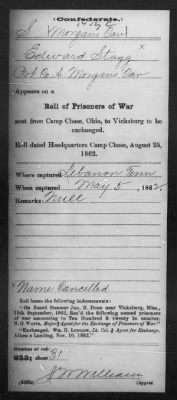 (Confederate.)
S Morgan's Cav
Edward Stagg
Pvt Co. A Morgan's Cav
Appears on a
Roll of Prisoners of War
sent from Camp Chase, Ohio, to Vicksburg to be
exchanged.
Roll dated Headquarters Camp Chase, August 25,
1862.
Where captured Lebanon Tenn
When captured May 5, 1862.
Remarks:
Name Cancelled
Roll bears the following indorsements:
"On Board Steamer Jno. H. Done near Vicksburg, Miss.,
15th September, 1862, Rec'd the following named prisoners
of war amounting to Ten Hundred & twenty in number.
N. G. Watts, Major & Agent for the Exchange of Prisoners of War."
"Exchanged. Wm. H. Ludlow, Lt. Col. & Agent for Exchange.
Aiken's Landing, Nov. 10, 1862."
Number of roll:
sheet 31
Copyist.